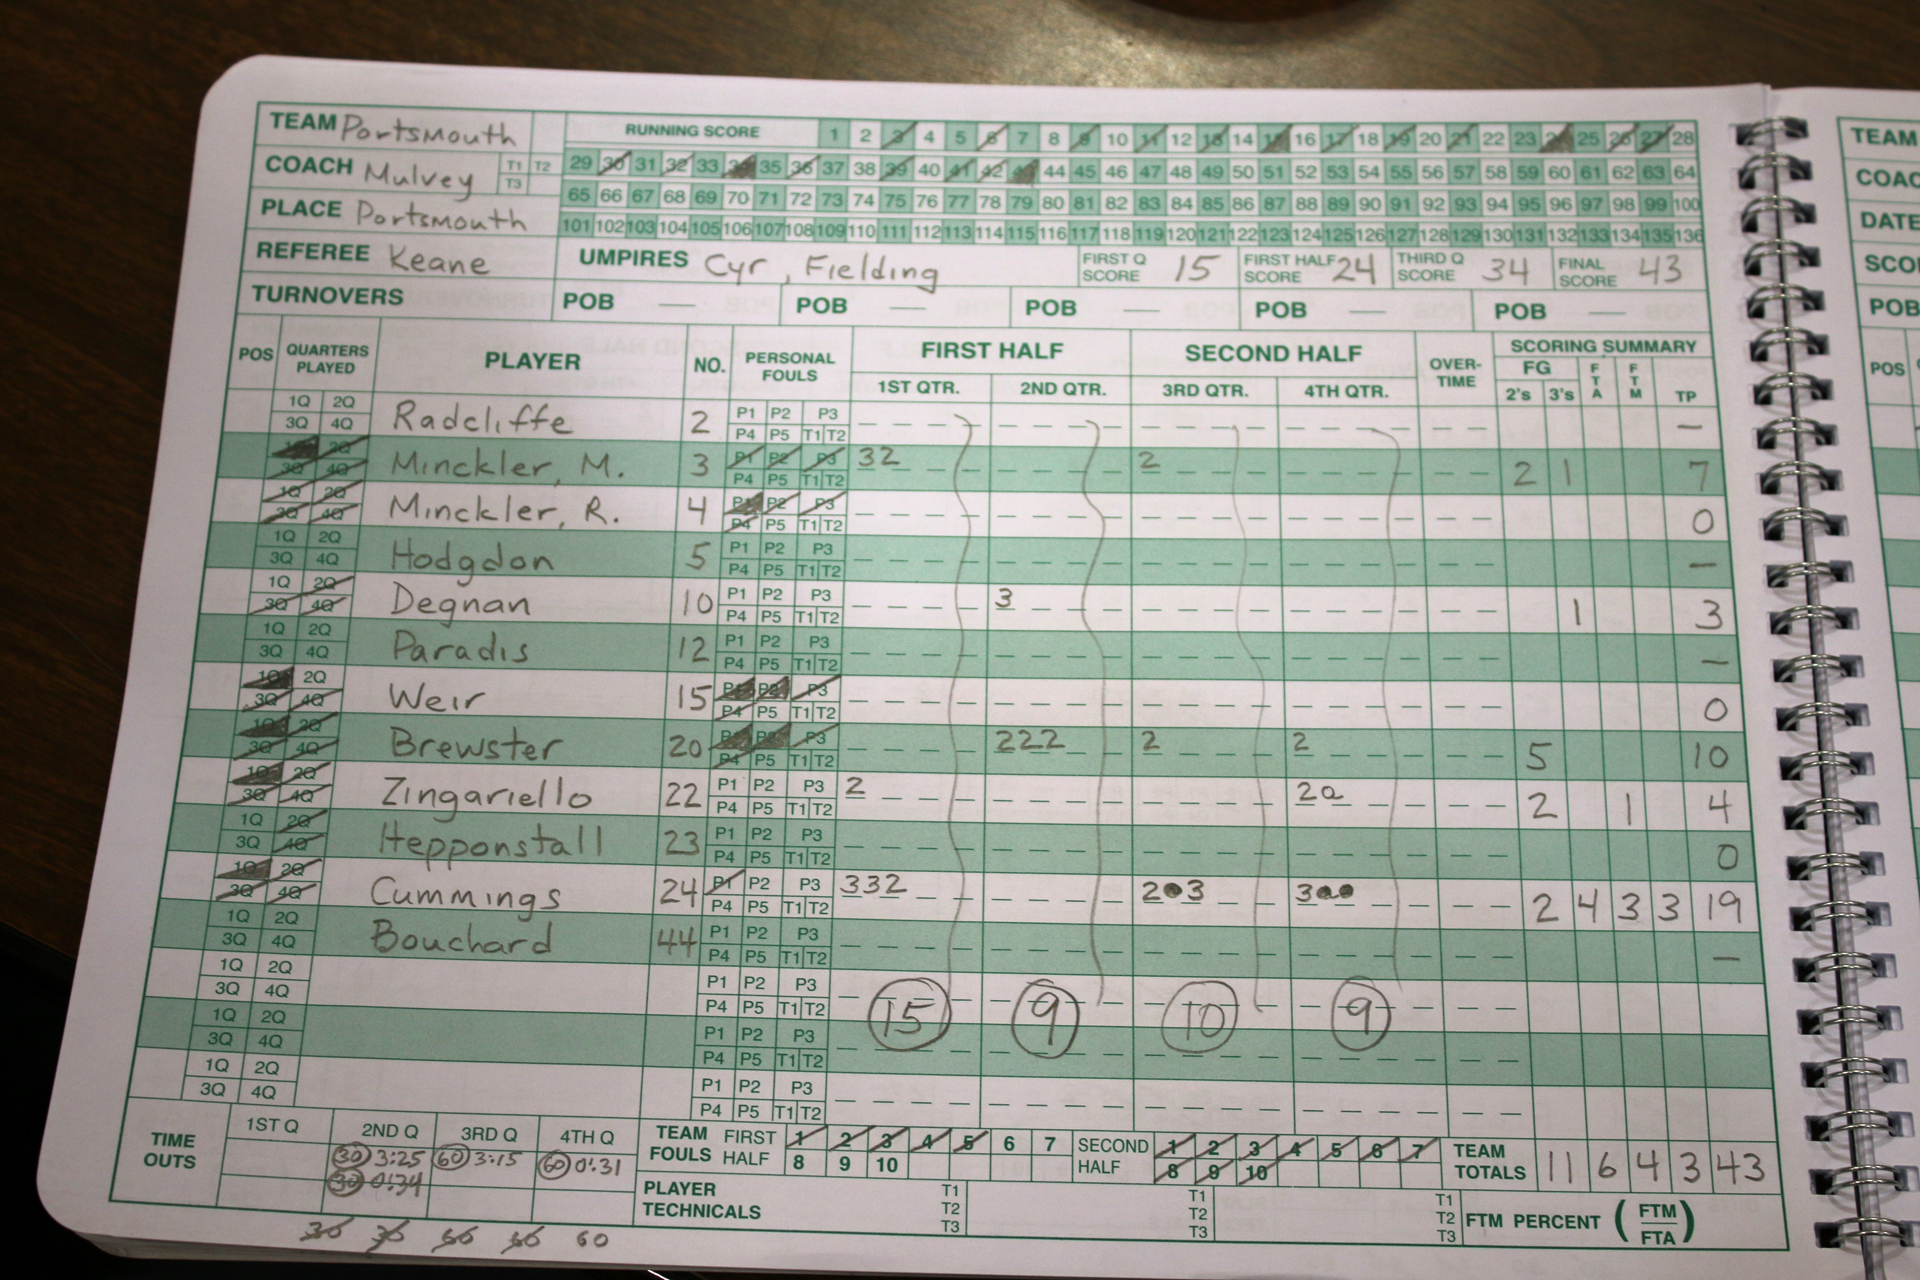 TEAM Portsmouth RUNNING SCORE 1 2 3 4 5 6 7 8 9 10 11 12 13 14 15 16 17 18 19 20 21 22 23 24 25 26 27 28
COACH Mulvey T1 T2 T3 29 30 31 32 33 34 35 36 37 38 39 40 41 42 43 44 45 46 47 48 49 50 51 52 53 54 55 56 57 58 59 60 61 62 63 64
65 66 67 68 69 70 71 72 73 74 75 76 77 78 79 80 81 82 83 84 85 86 87 88 89 90 91 92 93 94 95 96 97 98 99 100
PLACE Portsmouth 101 102 103 104 105 106 107 108 109 110 111 112 113 114 115 116 117 118 119 120 121 122 123 124 125 126 127 128 129 130 131 132 133 134 135 136
REFEREE Keane UMPIRES Cyr, Fielding FIRST Q SCORE 15 FIRST HALF SCORE 24 THIRD Q SCORE 34 FINAL SCORE 43
TURNOVERS POB — POB — POB — POB — POB —
POS QUARTERS PLAYED PLAYER NO. PERSONAL FOULS FIRST HALF SECOND HALF OVER-TIME SCORING SUMMARY
1ST QTR. 2ND QTR. 3RD QTR. 4TH QTR. FG 2's 3's FTA FTM TP
1Q 2Q 3Q 4Q Radcliffe 2 P1 P2 P3 P4 P5 T1 T2 —
1Q 2Q 3Q 4Q Minckler, M. 3 P1 P2 P3 P4 P5 T1 T2 32 2 2 1 7
1Q 2Q 3Q 4Q Minckler, R. 4 P1 P2 P3 P4 P5 T1 T2 0
1Q 2Q 3Q 4Q Hodgdon 5 P1 P2 P3 P4 P5 T1 T2 —
1Q 2Q 3Q 4Q Degnan 10 P1 P2 P3 P4 P5 T1 T2 3 1 3
1Q 2Q 3Q 4Q Paradis 12 P1 P2 P3 P4 P5 T1 T2 —
1Q 2Q 3Q 4Q Weir 15 P1 P2 P3 P4 P5 T1 T2 0
1Q 2Q 3Q 4Q Brewster 20 P1 P2 P3 P4 P5 T1 T2 222 2 2 5 10
1Q 2Q 3Q 4Q Zingariello 22 P1 P2 P3 P4 P5 T1 T2 2 2o 2 1 4
1Q 2Q 3Q 4Q Hepponstall 23 P1 P2 P3 P4 P5 T1 T2 0
1Q 2Q 3Q 4Q Cummings 24 P1 P2 P3 P4 P5 T1 T2 332 2●3 3●● 2 4 3 3 19
1Q 2Q 3Q 4Q Bouchard 44 P1 P2 P3 P4 P5 T1 T2 —
1Q 2Q 3Q 4Q P1 P2 P3 P4 P5 T1 T2 15 9 10 9
1Q 2Q 3Q 4Q P1 P2 P3 P4 P5 T1 T2
1Q 2Q 3Q 4Q P1 P2 P3 P4 P5 T1 T2
TIME OUTS 1ST Q 2ND Q 3RD Q 4TH Q TEAM FOULS FIRST HALF 1 2 3 4 5 6 7 8 9 10 SECOND HALF 1 2 3 4 5 6 7 8 9 10 TEAM TOTALS 11 6 4 3 43
30 3:25 60 3:15 60 0:31
30 0:34
PLAYER TECHNICALS T1 T2 T3 T1 T2 T3 T1 T2 T3 FTM PERCENT (FTM/FTA)
30 30 60 60 60
TEAM
COAC
DATE
SCO
POB
POS